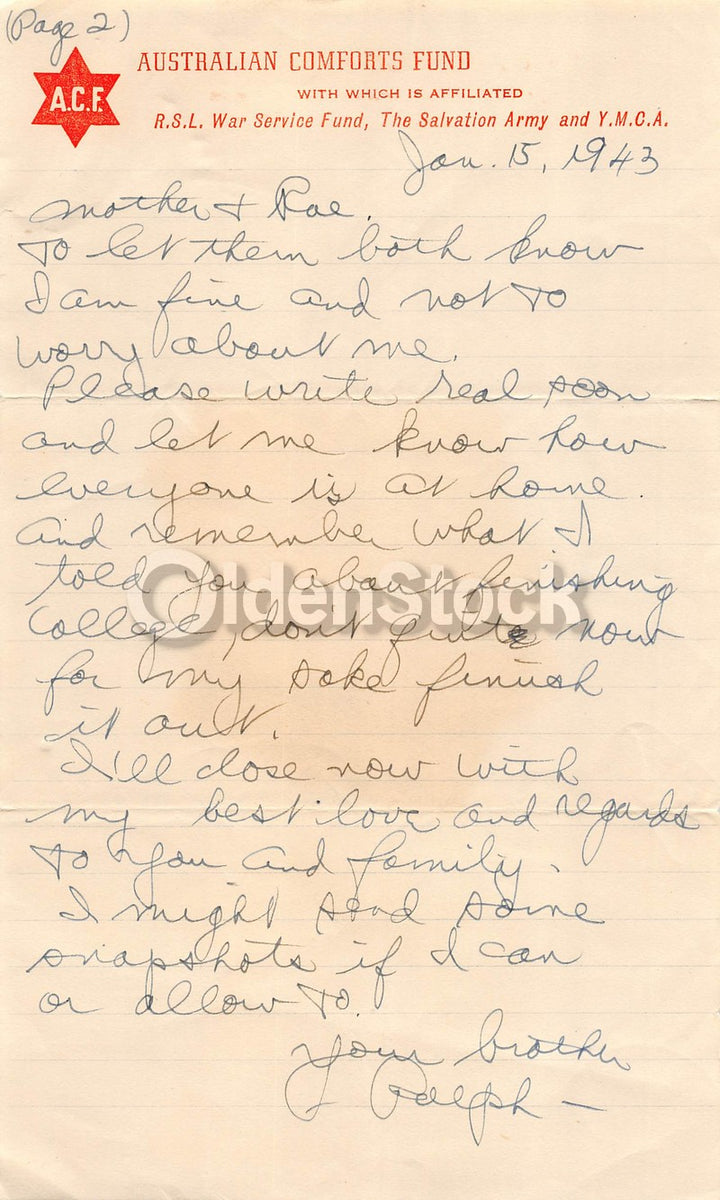 (Page 2)
AUSTRALIAN COMFORTS FUND
A.C.F.
WITH WHICH IS AFFILIATED
R.S.L. War Service Fund, The Salvation Army and Y.M.C.A.
Jan. 15, 1943
Mother & Rae.
to let them both know
I am fine and not to
worry about me.
Please write real soon
and let me know how
everyone is at home.
And remember what I
told you about finishing
OldenStock
College, don't quite now
for my sake finish
it out.
I'll close now with
my best love and regards
to you and family.
I might send some
snapshots if I can
or allow to.
Your brother
Ralph —